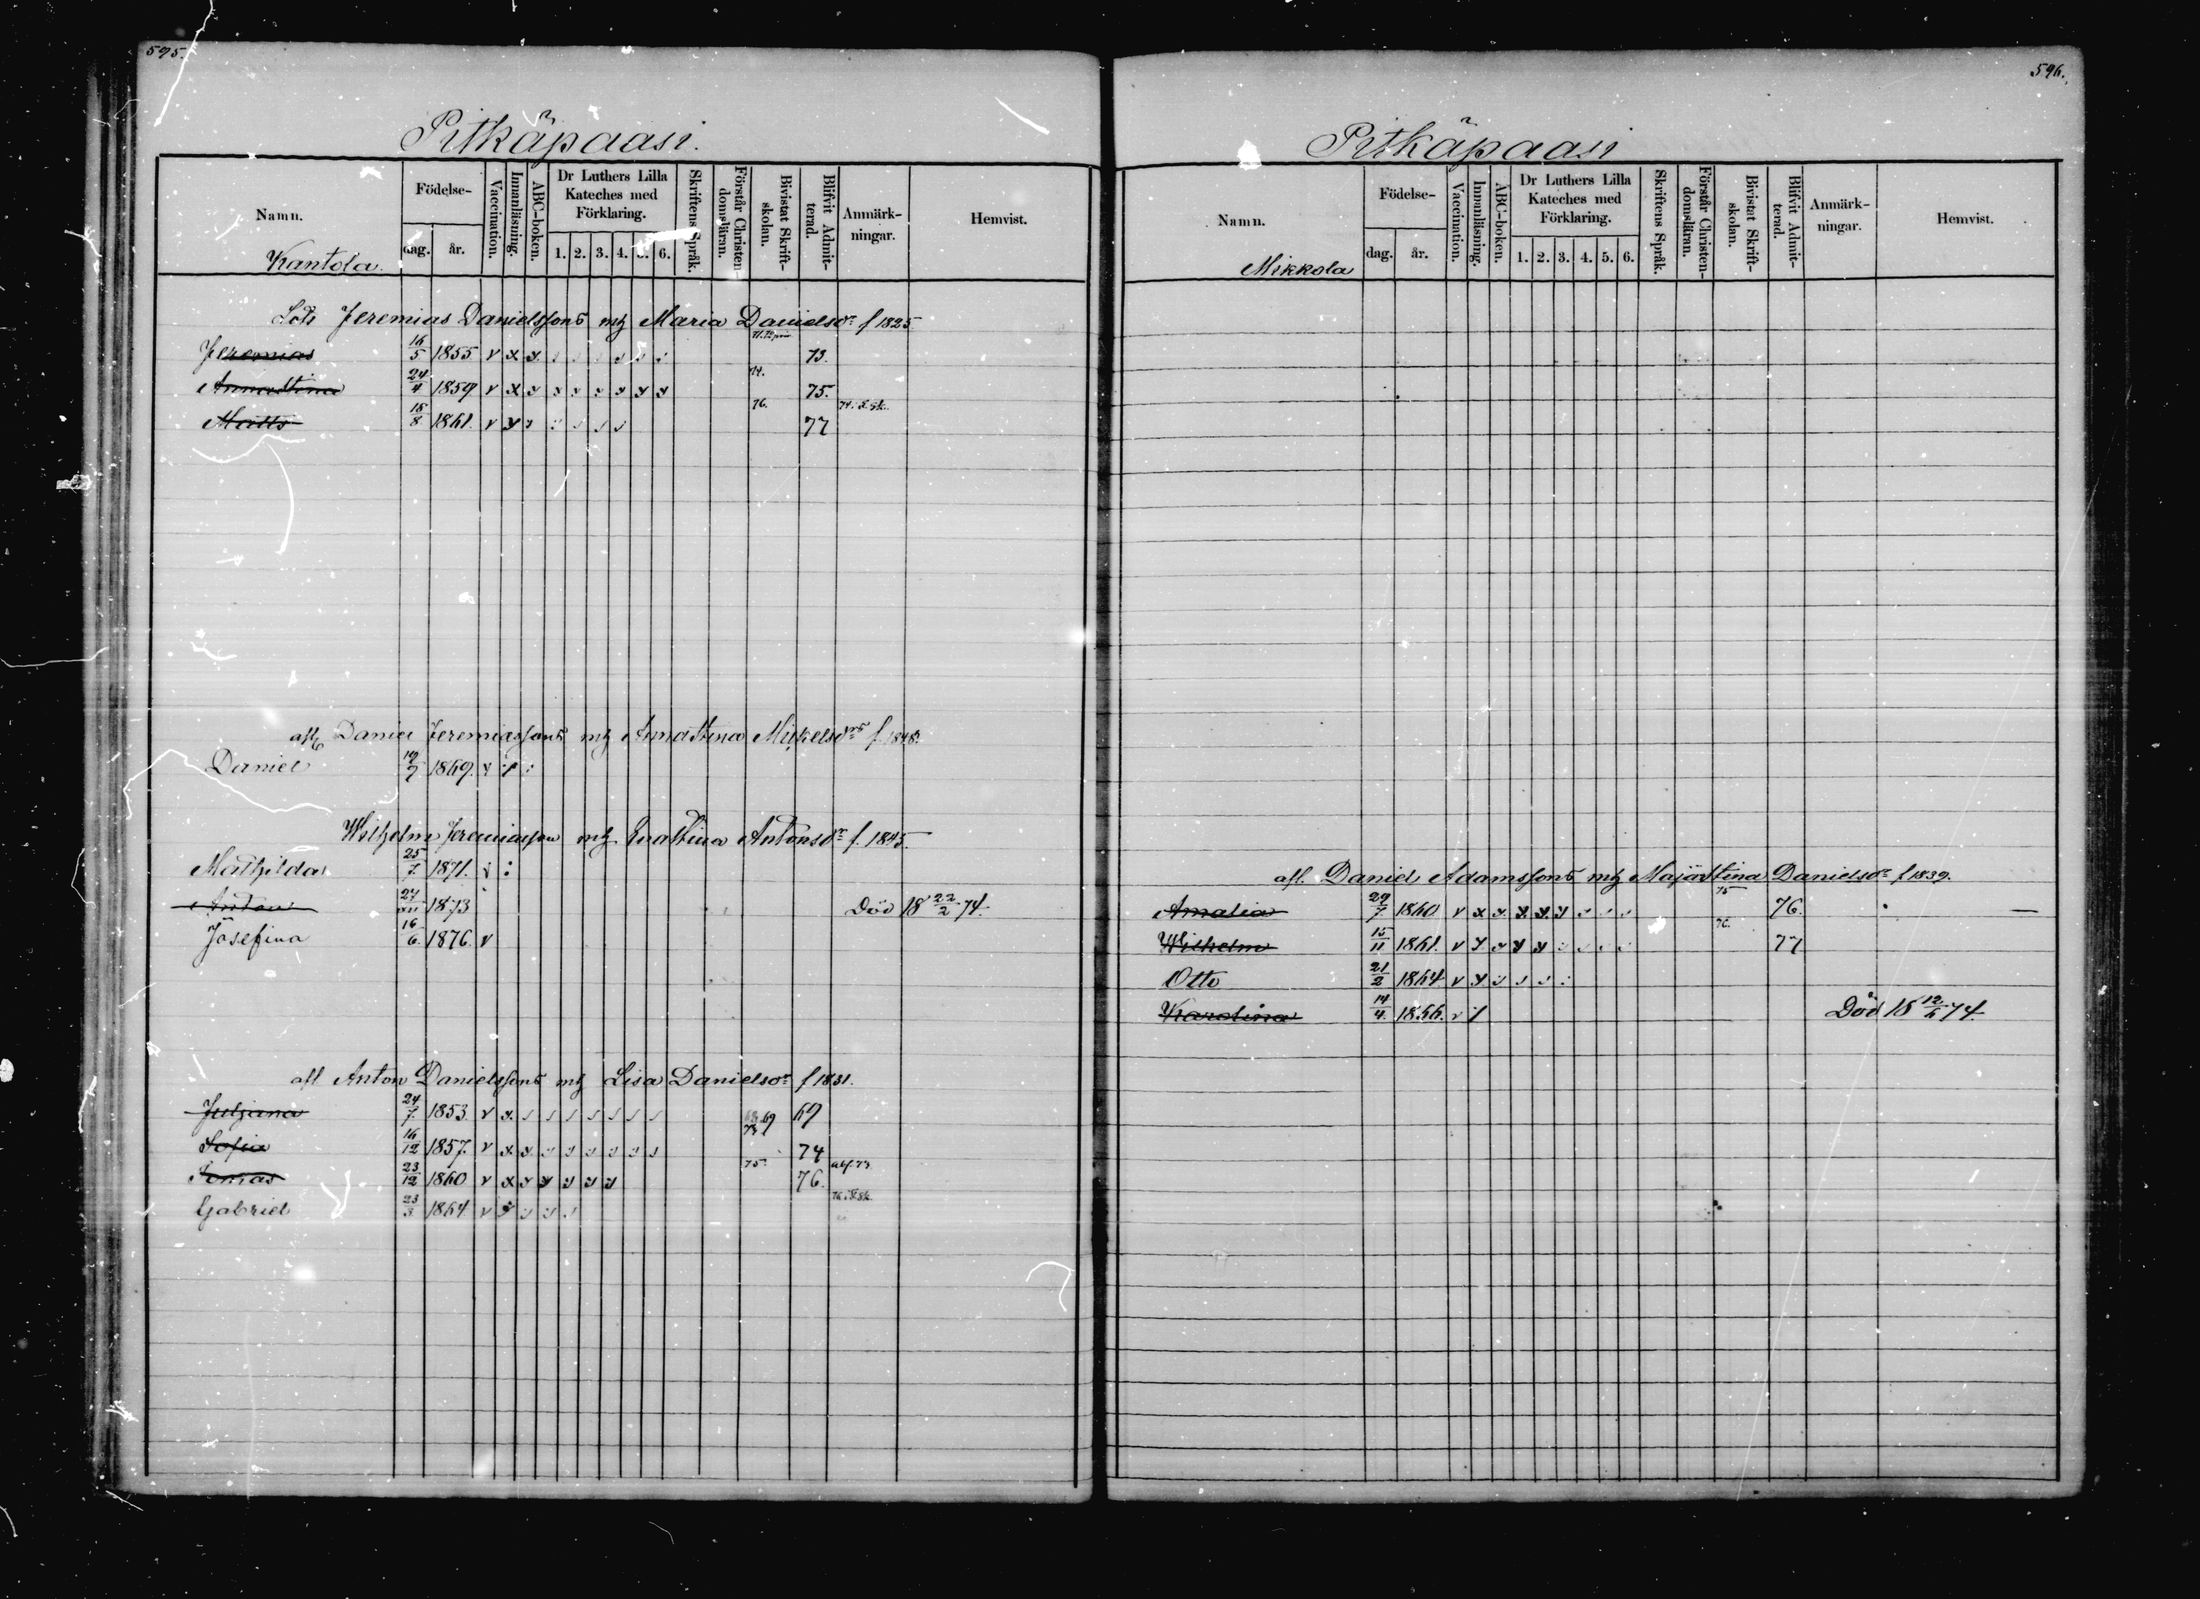 595.
Pitkäpaasi.
Namn. Födelse- dag. år. Vaccination. Innanläsning. ABC-boken. Dr Luthers Lilla Kateches med Förklaring. 1. 2. 3. 4. 5. 6. Skriftens Språk. Förstår Christendomsläran. Bivistat Skriftskolan. Blifvit Admitterad. Anmärkningar. Hemvist.
Kantola
Lots Jeremias Danielssons mh Maria Danielsdr f 1825
Jeremias 16/5 1855 v x x 73.
Annastina 24/4 1859 v x 74. 75.
Matts 15/8 1861. v y 76. 77
afl Daniel Jeremiassons mh Annastina Mickelsdrs f. 1848.
Daniel 19/7 1869.
Wilhelm Jeremiasson mh Evastina Antonsdr f. 1845.
Mathilda 25/7. 1871.
Anton 27/XII 1873 Död 18 22/2 74.
Josefina 16/6. 1876. v
afl Anton Danielssons mh Lisa Danielsdr f 1831.
Juliana 24/7. 1853. v x 69 69
Sofia 16/12 1857. v x x 73 74
Tomas 23/12 1860 v x 75. 76.
Gabriel 23/3 1864 v
596.
Pitkäpaasi
Namn. Födelse- dag. år. Vaccination. Innanläsning. ABC-boken. Dr Luthers Lilla Kateches med Förklaring. 1. 2. 3. 4. 5. 6. Skriftens Språk. Förstår Christendomsläran. Bivistat Skriftskolan. Blifvit Admitterad. Anmärkningar. Hemvist.
Mikkola
afl. Daniel Adamssons mh Majastina Danielsdr f 1839.
Amalia 29/7 1860 v x 75 76.
Wilhelm 15/11 1861. v 76. 77
Otto 21/2 1864 v
Karolina 14/4. 1866. v Död 18 12/6 74.